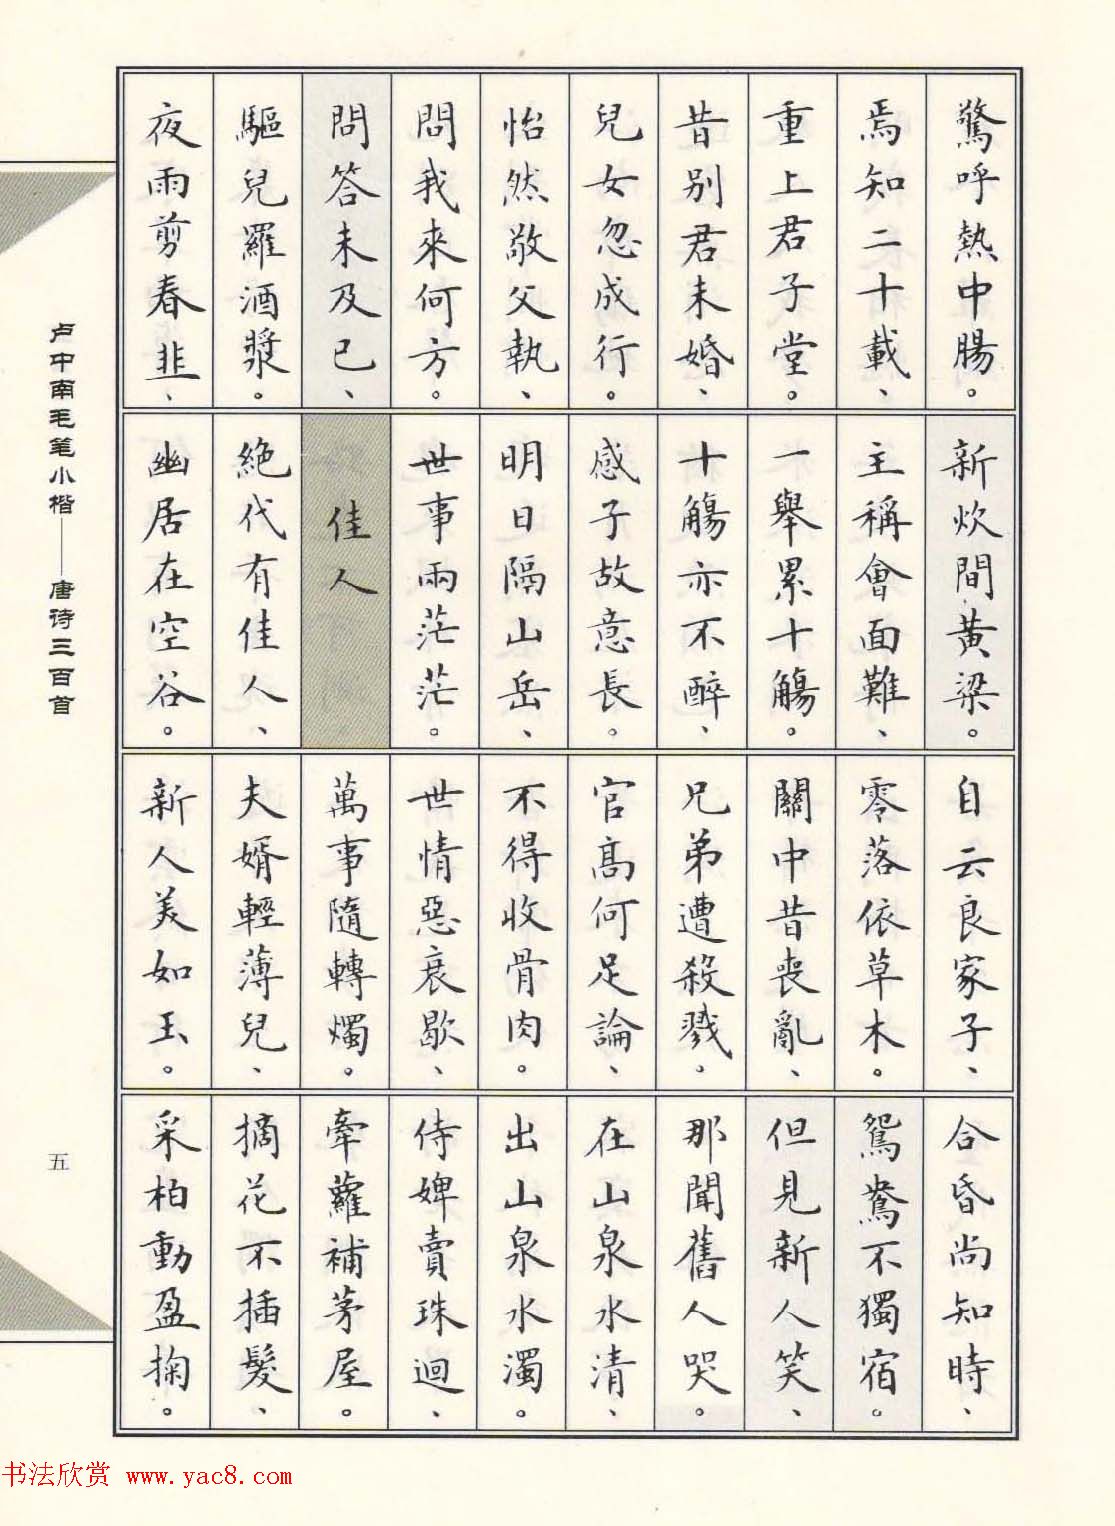 驚呼熱中腸。
焉知二十載、
重上君子堂。
昔別君未婚、
兒女忽成行。
怡然敬父執、
問我來何方。
問答未及已、
驅兒羅酒漿。
夜雨剪春韭、
新炊間黃梁。
主稱會面難、
一舉累十觴。
十觴亦不醉、
感子故意長。
明日隔山岳、
世事兩茫茫。
佳人
絕代有佳人、
幽居在空谷。
自云良家子、
零落依草木。
關中昔喪亂、
兄弟遭殺戮。
官高何足論、
不得收骨肉。
世情惡衰歇、
萬事隨轉燭。
夫婿輕薄兒、
新人美如玉。
合昏尚知時、
鴛鴦不獨宿。
但見新人笑、
那聞舊人哭。
在山泉水清、
出山泉水濁。
侍婢賣珠迴、
牽蘿補茅屋。
摘花不插髮、
采柏動盈掬。
卢中南毛笔小楷——唐诗三百首
五
书法欣赏 www.yac8.com